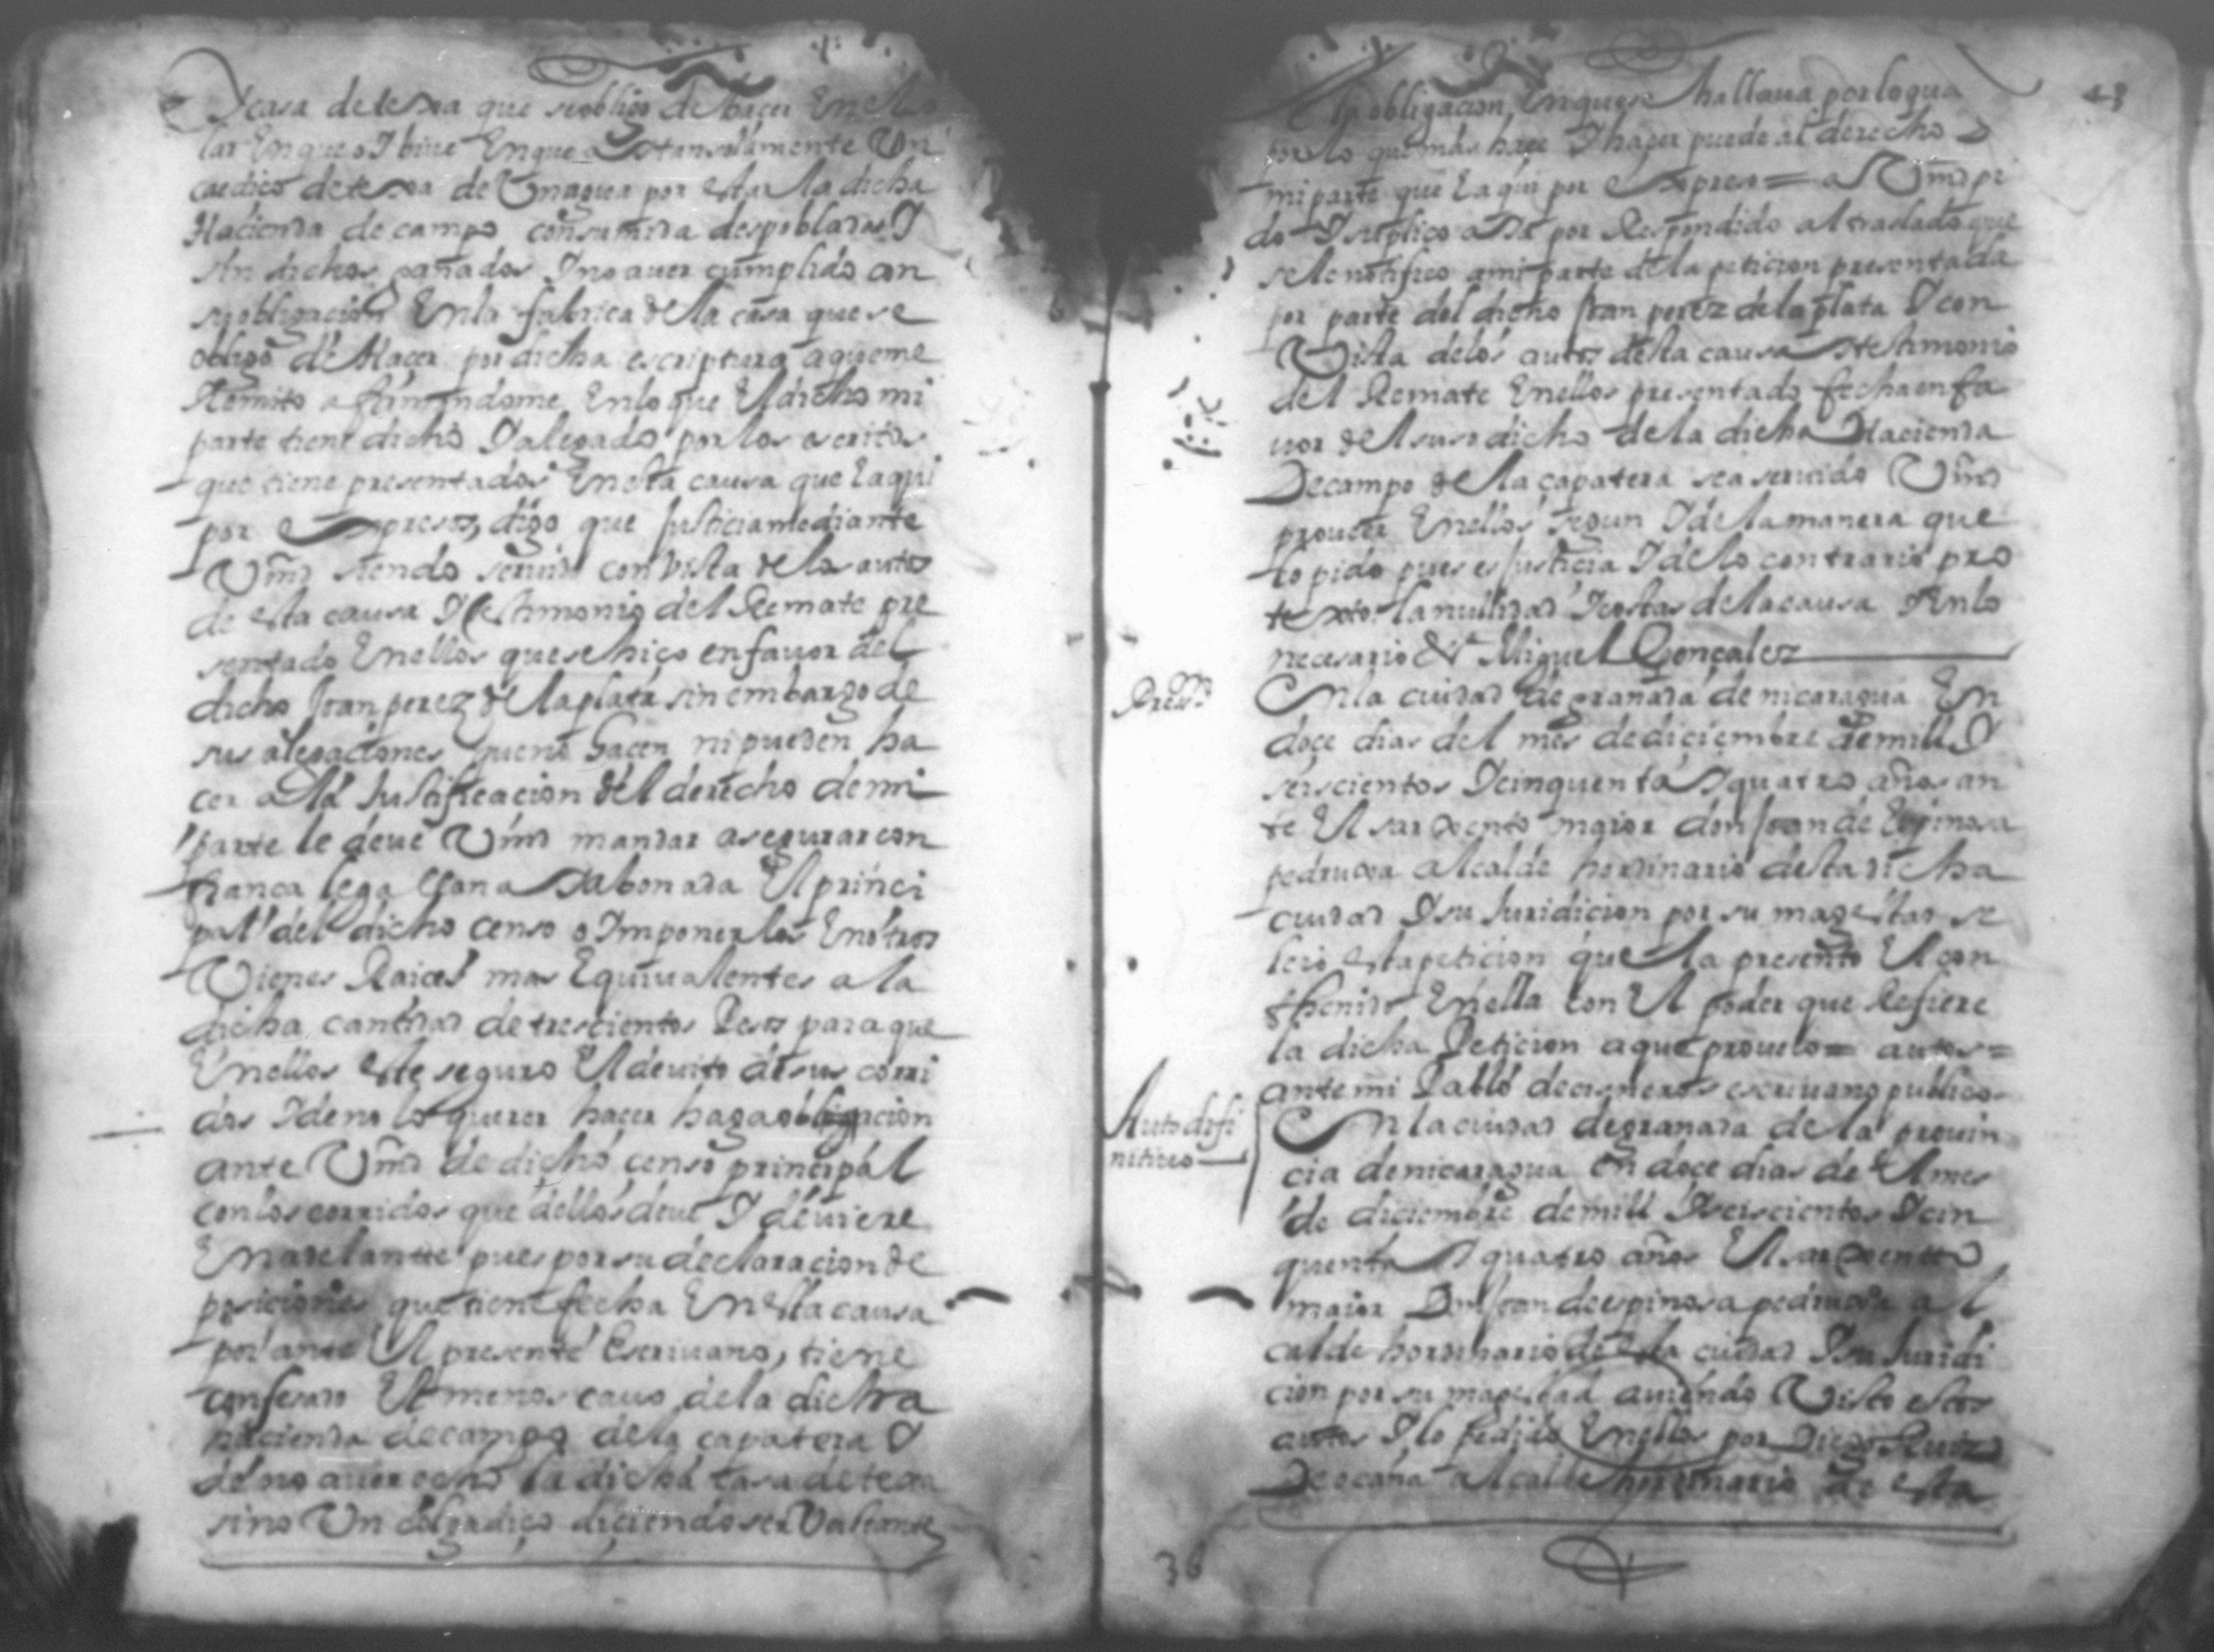 Y casa de texa que se obligo de hacer En el so
lar En que oy bive En que a Estan solamente Un
caedico de texa de Un agua por estar la dicha
Hacienda de campo consumida despoblada Y
sin dichos gañados Y no aver cumplido con
su obligacion En la fabrica de la casa que se
obligo de Hacer por dicha escriptura a que me
Remito afirmandome En lo que El dicho mi
parte tiene dicho Y alegado por los escritos
que tiene presentados En esta causa que E aqui
por Expresos, digo que Justicia mediante
Vmd siendo servido con vista de los autos
de esta causa Y testimonio del Remate pre
sentado En ellos que se hiço en favor del
dicho Juan perez de la plata sin embargo de
sus alegaciones que no hacen ni pueden ha
cer a la Justificacion del derecho de mi
parte le deve Vmd mandar asegurar con
fianca lega llana Y abonada El princi
pal del dicho censo o Imponerlos En otros
Vienes Raices mas Equivalentes a la
dicha cantidad de trescientos Pesos para que
En ellos este seguro El devito de sus corri
dos Y de no lo querer hacer haga obligacion
ante Vmd de dicho censo principal
con los corridos que dellos deve Y deviere
En adelante pues por su declaracion de
posiciones que tiene fecha En esta causa
por ante El presente Escrivano, tiene
confesado El menos cavo de la dicha
hacienda de campo de la capatera Y
de no aver hecho la dicha casa de texa
sino Un colgadiço diciendo ser Vastante
48
la obligacion En que se hallava por lo qual
por lo que mas hace Y hacer puede al derecho de
mi parte que E aqui por Expreso = a Vmd pi
do Y suplico aya por Respondido al traslado que
se le notifico a mi parte de la peticion presentada
por parte del dicho Juan perez de la plata Y con
Vista de los autos desta causa Y testimonio
del Remate En ellos presentado fecha en fa
vor del susodicho de la dicha Hacienda
De campo de la capatera sea servido Vmd
proveer En ellos segun Y de la manera que
lo pido pues es Justicia Y de lo contrario pro
texto la nullidad Y costas de la causa Y En lo
necesario &a Miguel Gonçalez
Presn
En la ciudad de granada de nicaragua En
doce dias del mes de diciembre de mill Y
seiscientos Y cinquenta Y quatro años an
te El sarxento maior don Juan de Espinosa
pedruxa alcalde hordinario desta dicha
ciudad Y su Juridicion por su magestad se
leio esta peticion que la presento El con
thenido En ella con El poder que Refiere
la dicha Peticion a que proveio = autos =
ante mi Pablo de cisneros escrivano publico
Auto difi
nitivo
En la ciudad de granada de la provin
cia de nicaragua En doce dias del mes
de diciembre de mill Y seiscientos Y cin
quenta Y quatro años El sarxento
maior Don Juan de espinosa pedruxa al
calde hordinario de esta ciudad Y su Juridi
cion por su magestad aviendo Visto estos
autos Y lo pedido En ellos por Diego Ruiz
De ocaña alcalde hordinario de esta
36